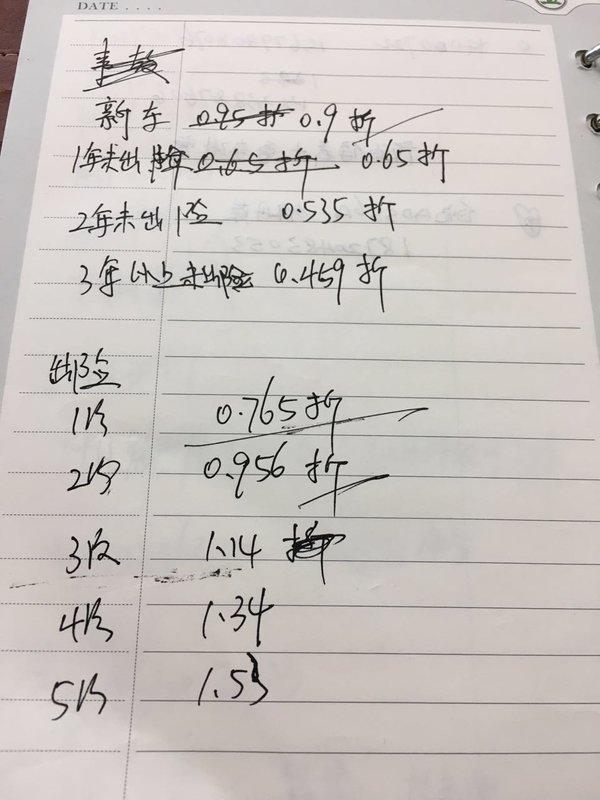 DATE
新车 0.95折 0.9折
1年未出险 0.65折 0.65折
2年未出险 0.535折
3年以上未出险 0.459折
出险
1次 0.765折
2次 0.956折
3次 1.14
4次 1.34
5次 1.53